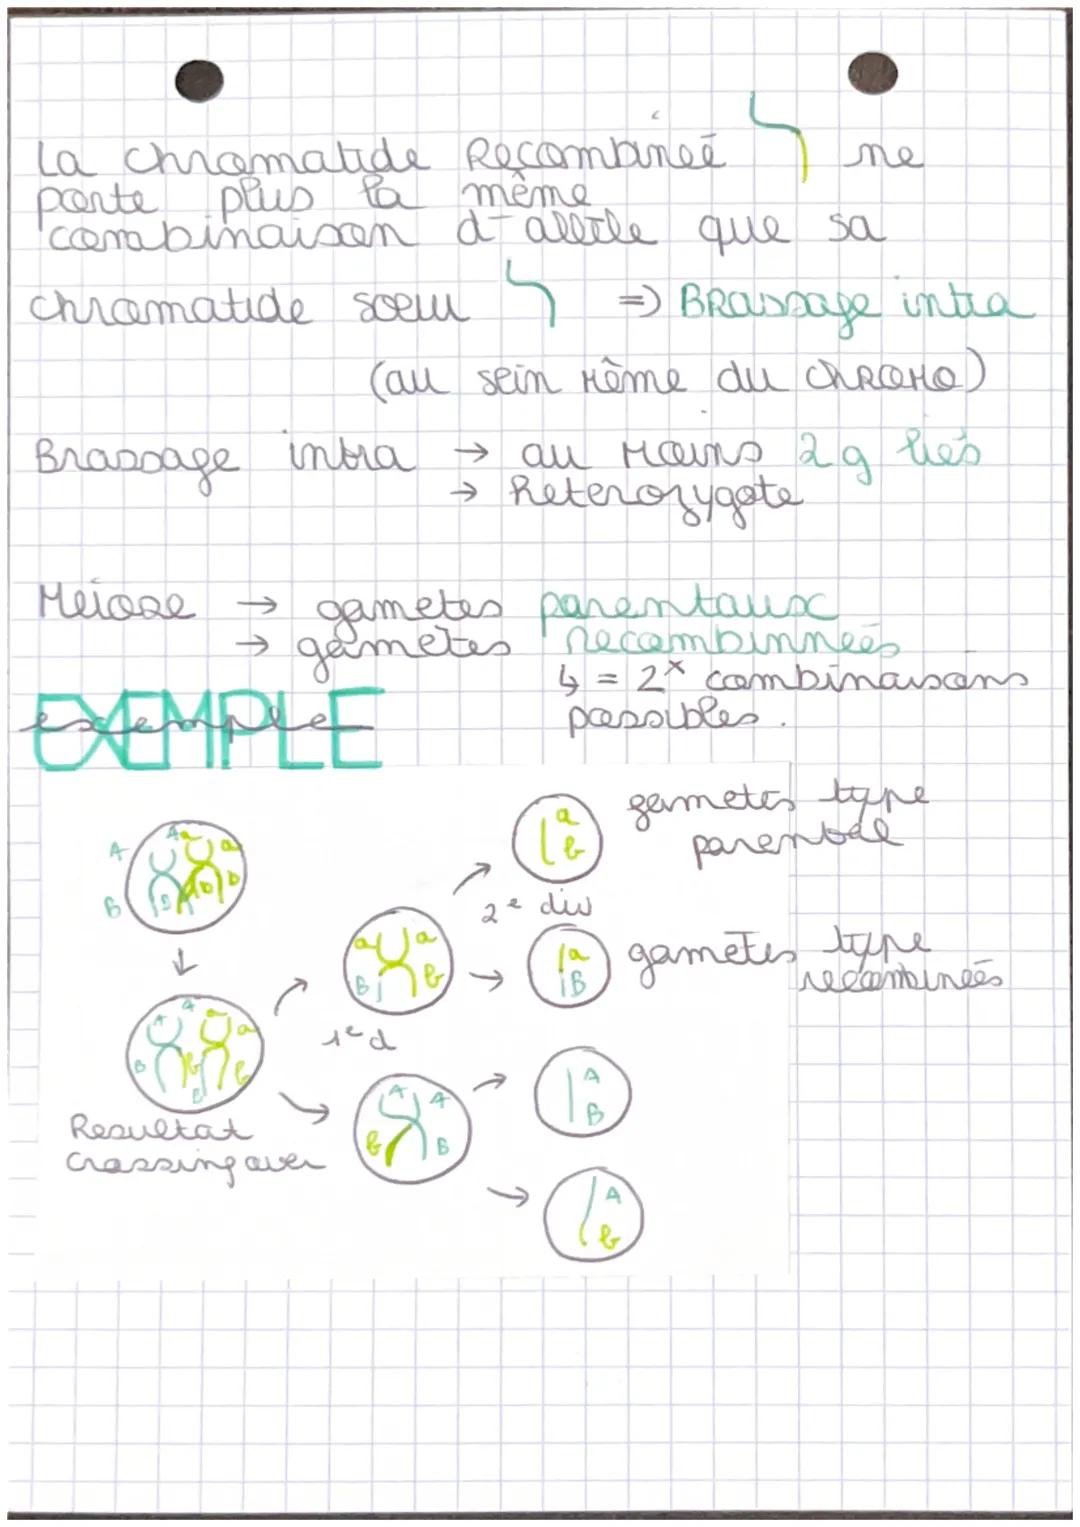 La chromatide Recombineé ne
porte plus la même
combinaison d'allèle que sa
chromatide soeur => BRassage intra
(au sein même du chRomo)
Brassage intra → au moins 2g liés
→ heterozygote
Meiose → gametes parentaux
→ gametes recombinneés
↳ = 2ˣ combinaisons
possibles.
EXEMPLE
exemple
gametes type
parental
2e div
gametes type
recombineés
1e d
Resultat
crossing over
A
B
A a a
b b
a b
a a
B b
a
B
A A a a
B b B b
A A
b B
A
B
A
b